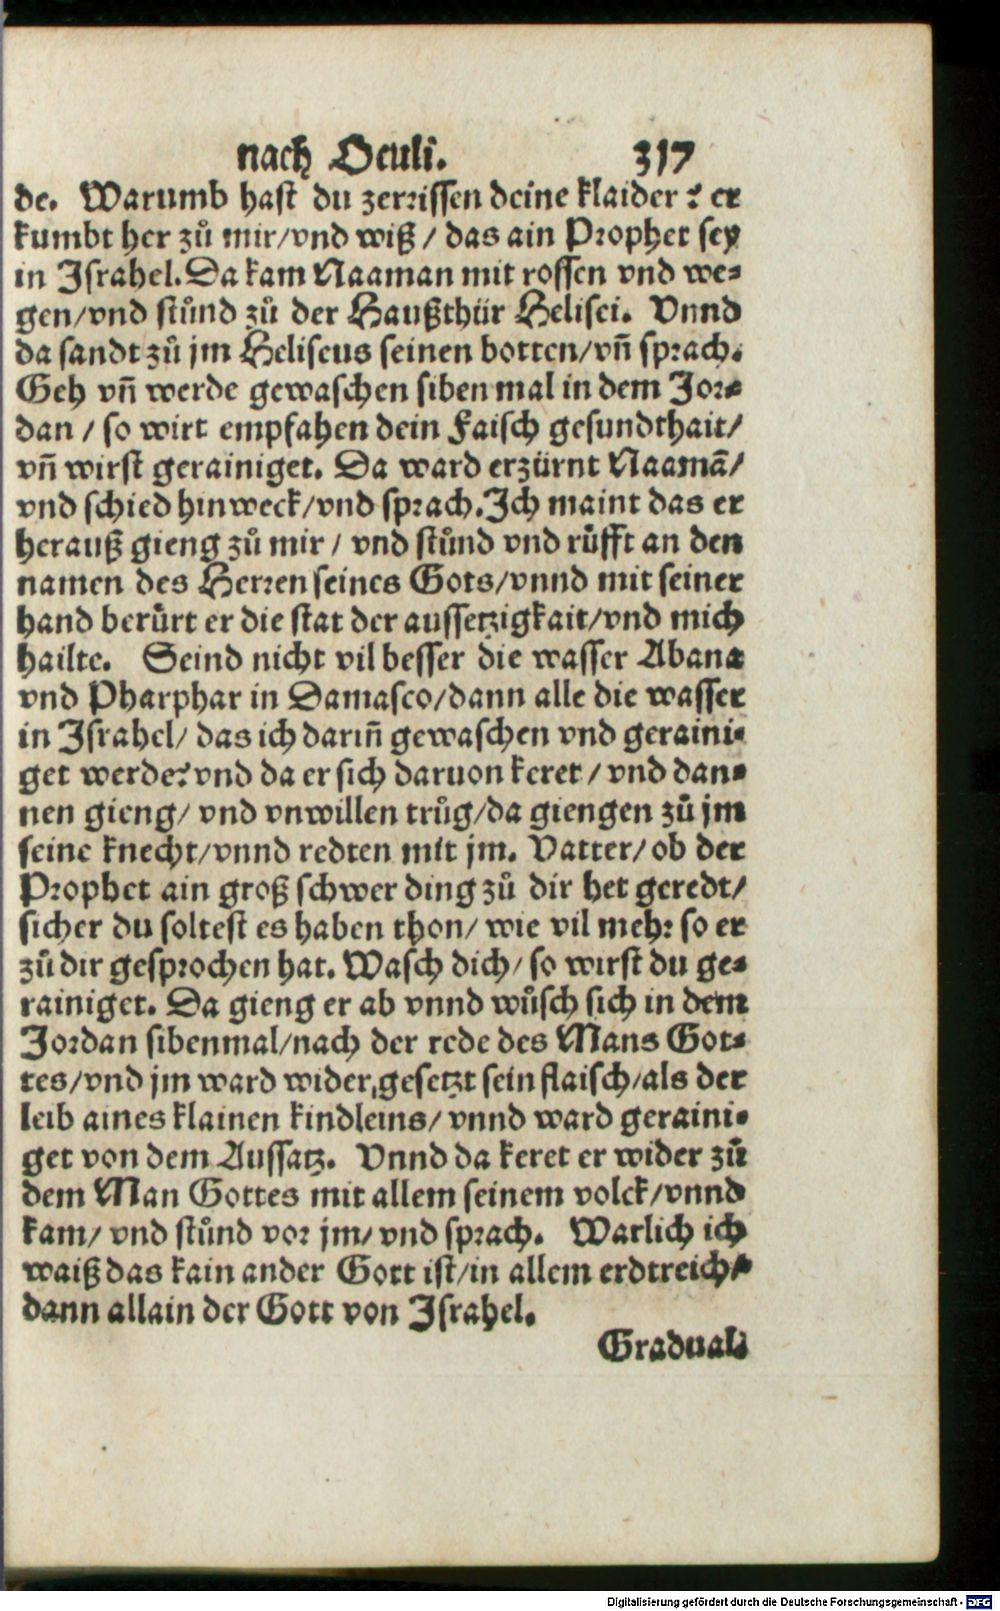 nach Oculi. 317
de. Warumb hast du zerrissen deine klaider? er
kumbt her zů mir/vnd wiß/das ain Prophet sey
in Israhel. Da kam Naaman mit rossen vnd we-
gen/vnd stůnd zů der Haußthür Helisei. Vnnd
da sandt zů jm Heliseus seinen botten/vñ sprach.
Geh vñ werde gewaschen siben mal in dem Jor-
dan/so wirt empfahen dein Faisch gesundthait/
vñ wirst gerainiget. Da ward erzürnt Naamā/
vnd schied hinweck/vnd sprach. Ich maint das er
herauß gieng zů mir/vnd stůnd vnd rüfft an den
namen des Herren seines Gots/vnnd mit seiner
hand berürt er die stat der aussetzigkait/vnd mich
hailte. Seind nicht vil besser die wasser Abana
vnd Pharphar in Damasco/dann alle die wasser
in Israhel/das ich dariñ gewaschen vnd geraini-
get werde? vnd da er sich daruon keret/vnd dan-
nen gieng/vnd vnwillen trůg/da giengen zů jm
seine knecht/vnnd redten mit jm. Vatter/ob der
Prophet ain groß schwer ding zů dir het geredt/
sicher du soltest es haben thon/wie vil mehr so er
zů dir gesprochen hat. Wasch dich/so wirst du ge-
rainiget. Da gieng er ab vnnd wůsch sich in dem
Jordan sibenmal/nach der rede des Mans Got-
tes/vnd jm ward wider gesetzt sein flaisch/als der
leib aines klainen kindleins/vnnd ward geraini-
get von dem Aussatz. Vnnd da keret er wider zů
dem Man Gottes mit allem seinem volck/vnnd
kam/vnd stůnd vor jm/vnd sprach. Warlich ich
waiß das kain ander Gott ist/in allem erdtreich/
dann allain der Gott von Israhel.
Gradual
Digitalisierung gefördert durch die Deutsche Forschungsgemeinschaft - DFG